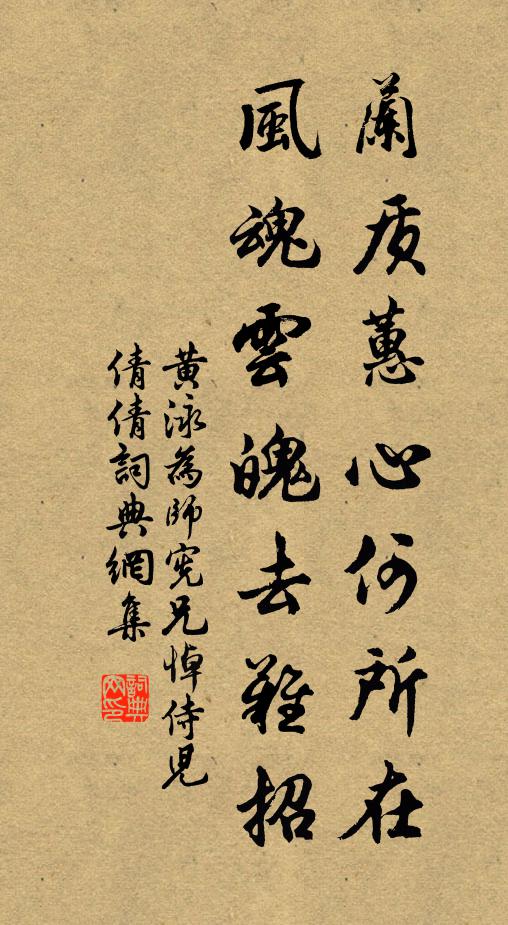 蘭質蕙心何所在
風魂雲魄去難招
黄泳為師憲兄悼侍兒
倩倩詞典網集
詞典網印